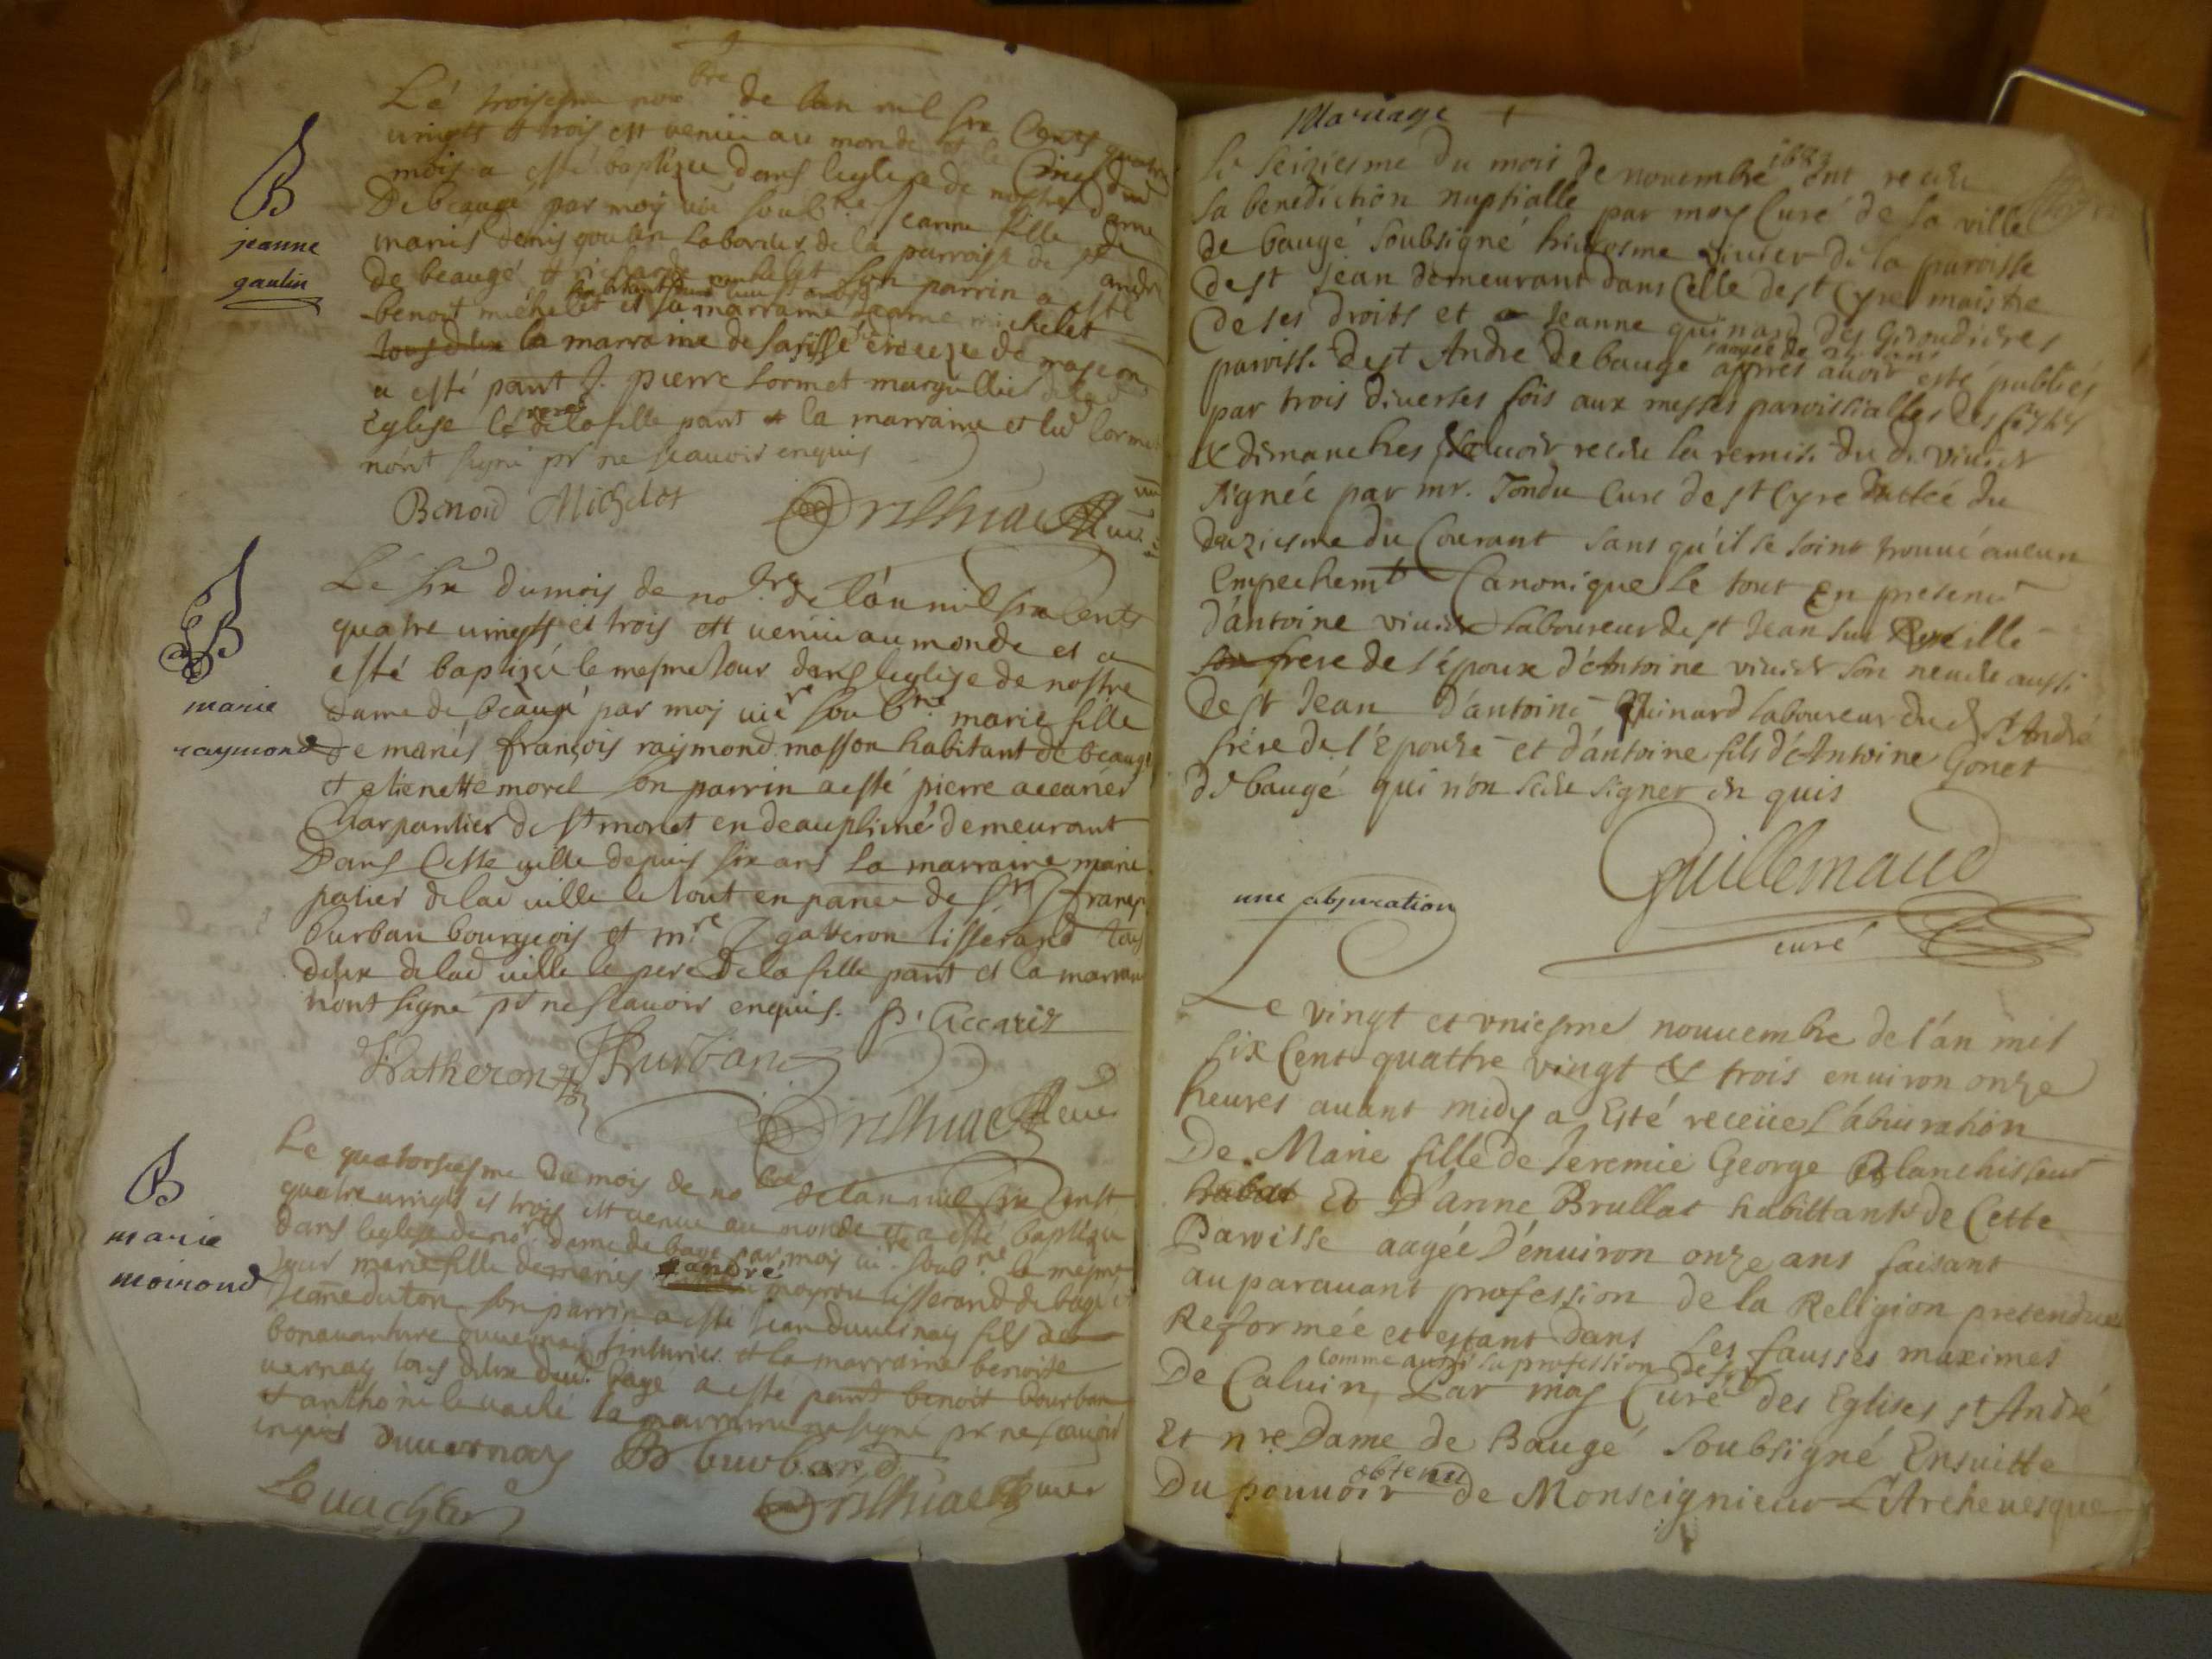 Le troisesme nov.bre de l'an mil six Cents quatre
vingts et trois est venüe au monde et le Cinq dud
mois a esté baptizée dans leglise de nostre dame
De beaugé par moy vic soub.ne Jeanne fille de
mariés denis goulin laboureur de la parroisse de st andré
de beaugé et son parrin a esté
benoit michelet et sa marraine Jeanne michelet
tous deux la marraine de
a esté pant J. pierre lormet margullier de lad
Eglise le pere de la fille pant et la marraine et led lormet
n'ont signé pr ne scauoir enquis
Benoid Michelet
B
jeanne
gaulin
Le six du mois de no.bre de l'an mil six Cents
quatre vingts et trois est venüe au monde et a
esté baptizée le mesme Jour dans leglize de nostre
dame de beaugé par moy vic.re soub.ne marie fille
de mariés françois raymond masson habitant de beaugé
et etienette morel son parrin a esté pierre accarier
Charpantier de st
Dans Cette ville depuis six ans la marraine marie
patier de lad ville le tout en pance de Sr franc
burban bourgeois et m.re gatteron tisserand tous
deux de lad ville le pere De la fille pant et la marraine
nont signé pr ne scauoir enquis. P. Accarier
Ratheron Burban
B
marie
raymond
Le quatorsiesme du mois de no.bre de l'an mil six Cents
quatre vingts et trois est venue au monde et a esté baptizée
dans leglize de no.re dame de bagé par moy vic.re soub.ne le mesme
jour marie fille de mariés andré moyrou tisserand de bagé et
Jeanne duton son parrin a esté Jean duuernay fils de
bonauanture duuernay tinturier et la marraine benoite
uernay tous deux dud. bagé a esté pant benoit bourban
et anthoine leuaché la marraine na signé pr ne scauoir
enquis duuernay B burband
Leuacher
B
marie
moirond
Mariage +
Le seiziesme du mois de nouembre 1683 ont receu
la benediction nuptialle par moy Curé de la ville
de baugé soubsigné hierosme viuier de la paroisse
de st Jean demeurant dans Celle de st Cyre maistre
de ses droits et Jeanne guinard des Giroudieres
paroisse de st André de baugé aagée de apprès auoir esté publiés
par trois diverses fois aux messes paroissialles des festes
& dimanches & auoir receu la remise du d. viuier
signée par mr. Tondu Curé de st Cyre dattée du
douziesme du Courant sans qu'il se soint trouué aucun
Empechemt Canonique Le tout En presence
d'antoine viuier laboureur de st Jean sur Reyssille
son frere de l'Epoux d'Antoine viuier son neueu aussi
de st Jean d'antoine Guinard laboureur du d St André
frére de l'Epouze et d'antoine fils d'Antoine Gonet
de baugé qui n'on sceu signer en quis
Guillemaud
curé
une abjuration
Le vingt et vniesme nouuembre de l'án mil
six Cent quattre vingt & trois enuiron onze
heures auant midy a Esté receüe L'abiuration
De Marie fille de Jeremie George Blanchisseur
habit Et D'anne Brullat habittants de Cette
Paroisse aagée D'enuiron onze ans faisant
auparauant profession de la Religion pretendue
Reformée et estant dans Les fausses maximes
De Caluin, comme aussi sa profession de foy Par moy Curé des Eglises st André
Et n.re Dame de Baugé soubsigné Ensuitte
Du pouuoir obtenu de Monseigneur L'Archeuesque